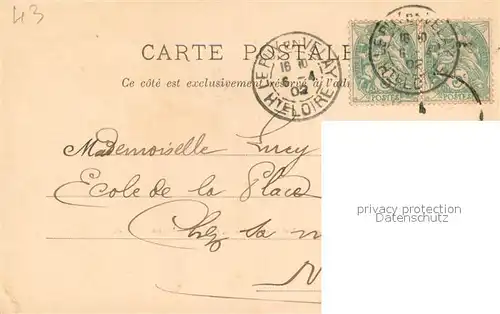 43
CARTE POSTALE
Ce côté est exclusivement réservé à l'adr
LE PUY-EN-VELAY
16 10
6 - 4
02
HTE LOIRE
Mademoiselle Lucy
Ecole de la Place
Chez sa m
N
privacy protection
Datenschutz